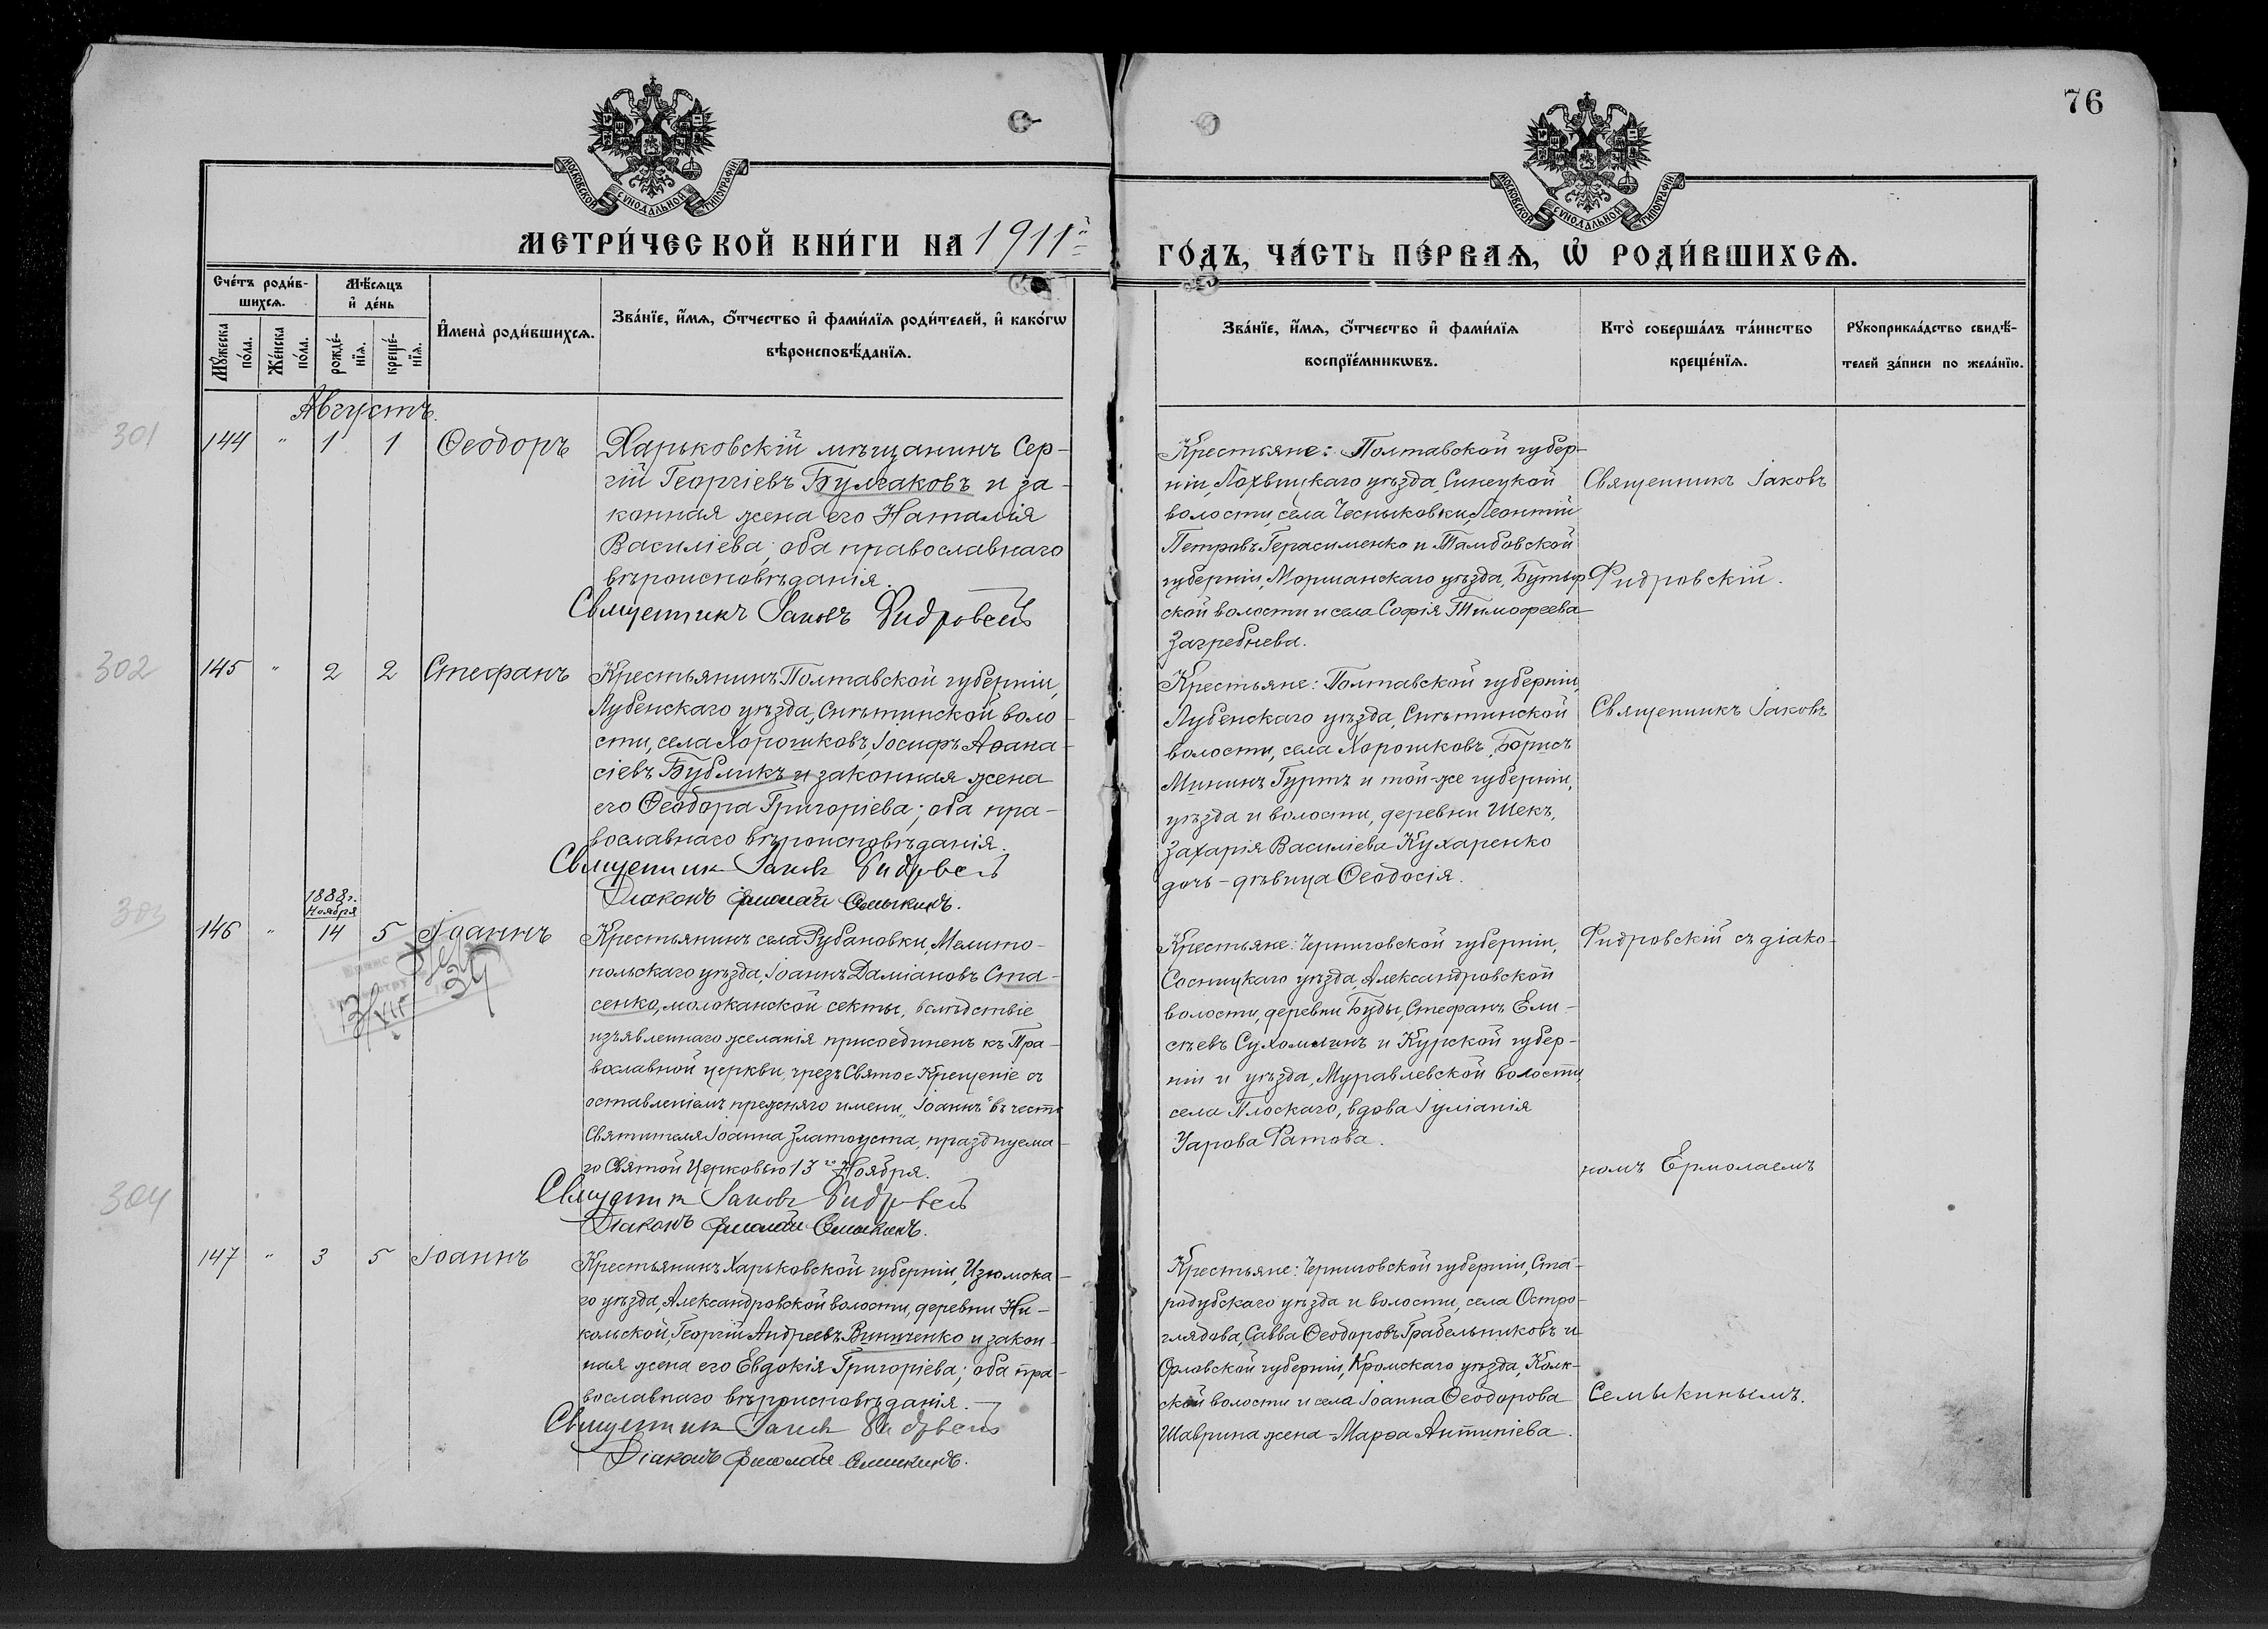 76
МОСКОВСКОЙ СѴНОДАЛЬНОЙ ТИПОГРАФІИ
МОСКОВСКОЙ СѴНОДАЛЬНОЙ ТИПОГРАФІИ
МЕТРИ́ЧЕСКОЙ КНИ́ГИ НА 1911й
ГО́ДЪ, ЧА́СТЬ ПЕ́РВАѦ, Ѽ РОДИ́ВШИХСѦ.
Сче́тъ роди́в-
шихсѧ.
Мꙋ́жеска
по́ла.
Же́нска
по́ла.
Мѣ́сѧцъ
и҆ де́нь
рожде́-
нїѧ.
креще́-
нїѧ.
И҆мена̀ роди́вшихсѧ.
Зва́нїе, и҆́мѧ, ѻ҆́тчество и҆ фами́лїѧ роди́телей, и҆ како́гѡ
вѣроисповѣ́данїѧ.
Зва́нїе, и҆́мѧ, ѻ҆́тчество и҆ фами́лїѧ
воспрїе́мникѡвъ.
Кто̀ соверша́лъ та́инство
креще́нїѧ.
Рꙋкоприкла́дство свидѣ́-
телей за́писи по жела́нїю.
Августъ.
301
144 " 1 1 Ѳеодоръ
Харьковскій мѣщанинъ Сер-
гій Георгіевъ Булгаковъ и за-
конная жена его Наталія
Василіева; оба православнаго
вѣроисповѣданія.
Священникъ Іаковъ Фидровскій
Крестьяне: Полтавской губер-
ніи, Лохвицкаго уѣзда, Синецкой
волости, села Чесныковки, Леонтій
Петровъ Герасименко и Тамбовской
губерніи, Моршанскаго уѣзда, Бутыр
ской волости и села Софія Тимофеева
Загребнева.
Священникъ Іаковъ
Фидровскій.
302
145 " 2 2 Стефанъ
Крестьянинъ Полтавской губерніи,
Лубенскаго уѣзда, Снѣтинской воло-
сти, села Хорошковъ, Іосифъ Аѳана-
сіевъ Бубликъ и законная жена
его Ѳеодора Григоріева; оба пра-
вославнаго вѣроисповѣданія.
Священник Іаковъ Фидровскій
Діаконъ Ермолай Семыкинъ.
Крестьяне: Полтавской губерніи,
Лубенскаго уѣзда, Снѣтинской
волости, села Хорошковъ, Борисъ
Мининъ Гуртъ и той-же губерніи,
уѣзда и волости, деревни Шекъ,
Захарія Василіева Кухаренко
дочь - дѣвица Ѳеодосія.
Священникъ Іаковъ
303
1888 г.
Ноября
146 " 14 5 Іоаннъ
3/VII 39
Крестьянинъ села Рубановки, Мелито-
польскаго уѣзда, Іоаннъ Даміановъ Ста-
сенко, молоканской секты, вслѣдствіе
изъявленнаго желанія присоединенъ къ Пра-
вославной церкви, чрезъ Святое Крещеніе съ
оставленіемъ прежняго имени „Іоаннъ" въ честь
Святителя Іоанна Златоуста, празднуема-
го Святой Церковью 13го Ноября.
Священник Іаковъ Фидровскій
Діаконъ Ермолай Семыкинъ.
Крестьяне: Черниговской губерніи,
Сосницкаго уѣзда, Александровской
волости, деревни Буды, Стефанъ Ели-
сѣевъ Сухомлинъ и Курской губер-
ніи и уѣзда, Муравлевской волости,
села Плоскаго, вдова Іуліанія
Уарова Ратова.
Фидровскій съ діако-
номъ Ермолаемъ
304
147 " 3 5 Іоаннъ
Крестьянинъ Харьковской губерніи, Изюмска-
го уѣзда, Александровской волости, деревни Ни-
кольской, Георгій Андреевъ Винниченко и закон-
ная жена его Евдокія Григоріева; оба пра-
вославнаго вѣроисповѣданія.
Священник Іаковъ Фидровскій
Діаконъ Ермолай Семыкинъ.
Крестьяне: Черниговской губерніи, Ста-
родубскаго уѣзда и волости, села Остро-
глядова, Савва Ѳеодоровъ Грабельниковъ и
Орловской губерніи, Кромскаго уѣзда, Колк-
ской волости и села Іоанна Ѳеодорова
Шаврина жена - Марѳа Антипіева.
Семыкинымъ.